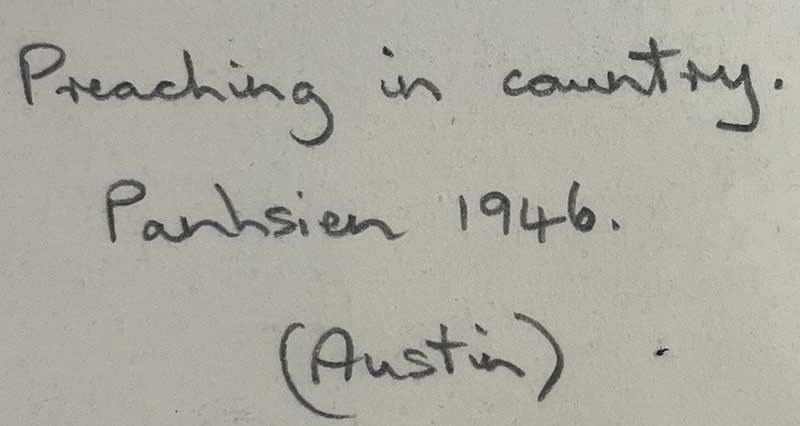 Preaching in country.
Panhsien 1946.
(Austin)